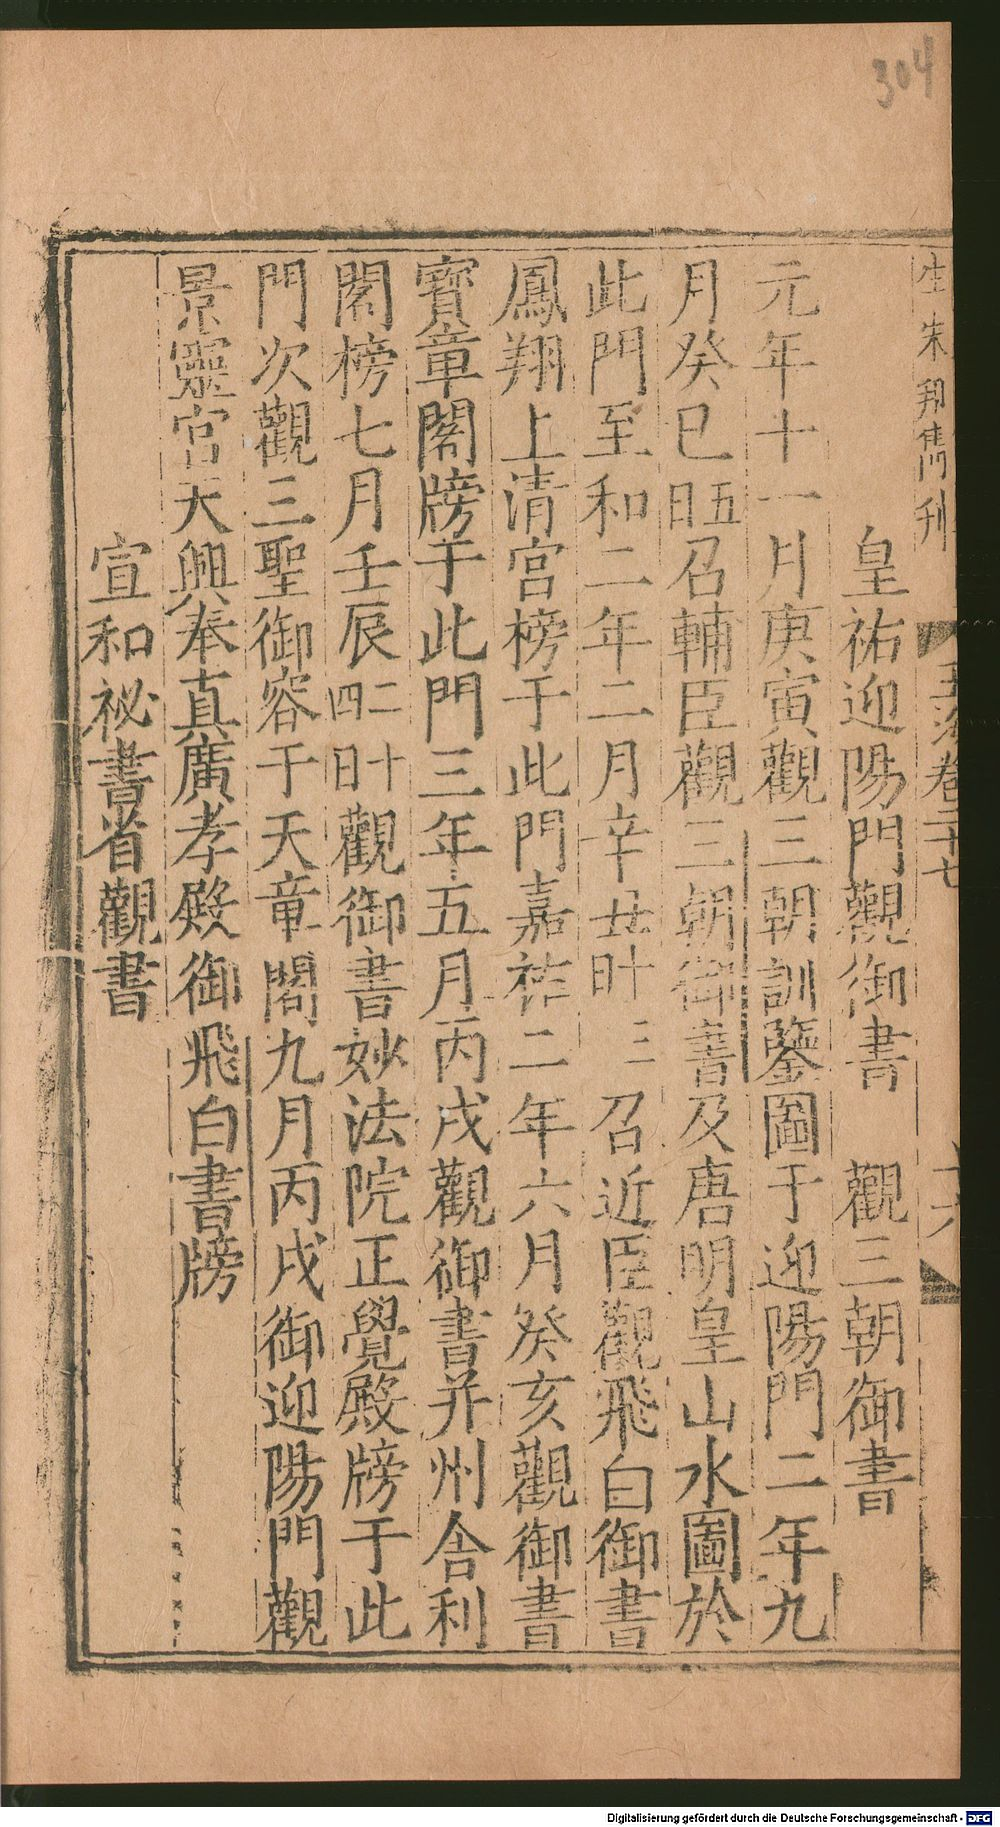 304
生朱邦雋刊
玉海卷二十七
十六
皇祐迎陽門觀御書 觀三朝御書
元年十一月庚寅觀三朝訓鑒圖于迎陽門二年九
月癸巳五日召輔臣觀三朝御書及唐明皇山水圖於
此門至和二年二月辛 召近臣觀飛白御書
鳳翔上清宮榜于此門嘉祐二年六月癸亥觀御書
寶章閣牓于此門三年五月丙戌觀御書并州舍利
閣榜七月壬辰二十四日觀御書妙法院正覺殿牓于此
門次觀三聖御容于天章閣九月丙戌御迎陽門觀
景靈宮天興奉真廣孝殿御飛白書牓
宣和祕書省觀書
Digitalisierung gefördert durch die Deutsche Forschungsgemeinschaft - DFG